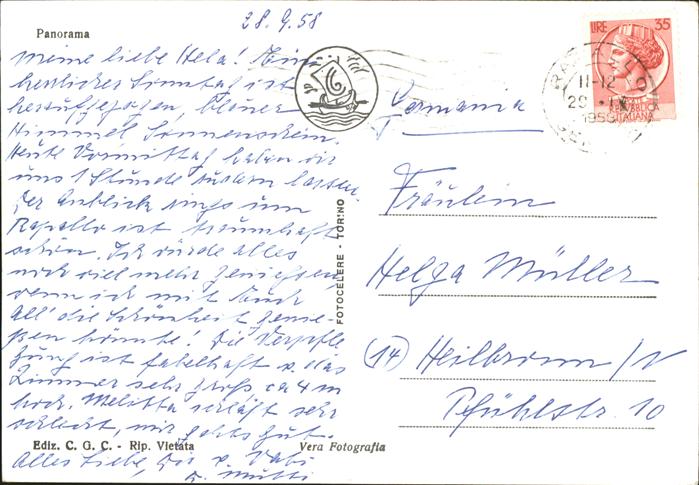 28.9.58
Panorama
Meine liebe Hela! Ein
herrlicher Sonntag ist
heraufgezogen, blauer
Himmel Sonnenschein.
Heute Vormittag haben wir
uns 1 Stunde rudern lassen.
Der Anblick rings um
Rapallo ist traumhaft
schön. Ich würde alles
noch viel mehr genießen,
wenn ich mit Euch
all' die Schönheit genie-
ßen könnte! Die Verpfle
gung ist fabelhaft u. das
Zimmer sehr groß ca 4 m
hoch. Melitta schläft sehr
schlecht, mir geht's gut.
Alles Liebe, Dir u.
Mutti
Ediz. C. G. C. - Rip. Vietata
Vera Fotografia
FOTOCELERE - TORINO
LIRE 35
REPUBBLICA
ITALIANA
RAPALLO
11-12
1958
Germania
Fräulein
Helga Müller
(14) Heilbronn/N
Pfühlstr. 10